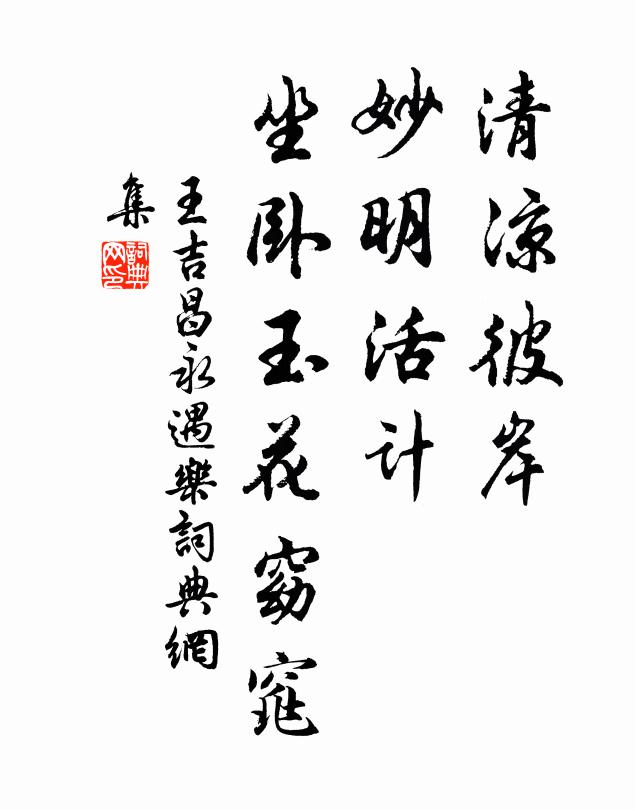 清凉彼岸
妙明活计
坐卧玉花窈窕
王吉昌永遇樂詞典網
集
詞典网印